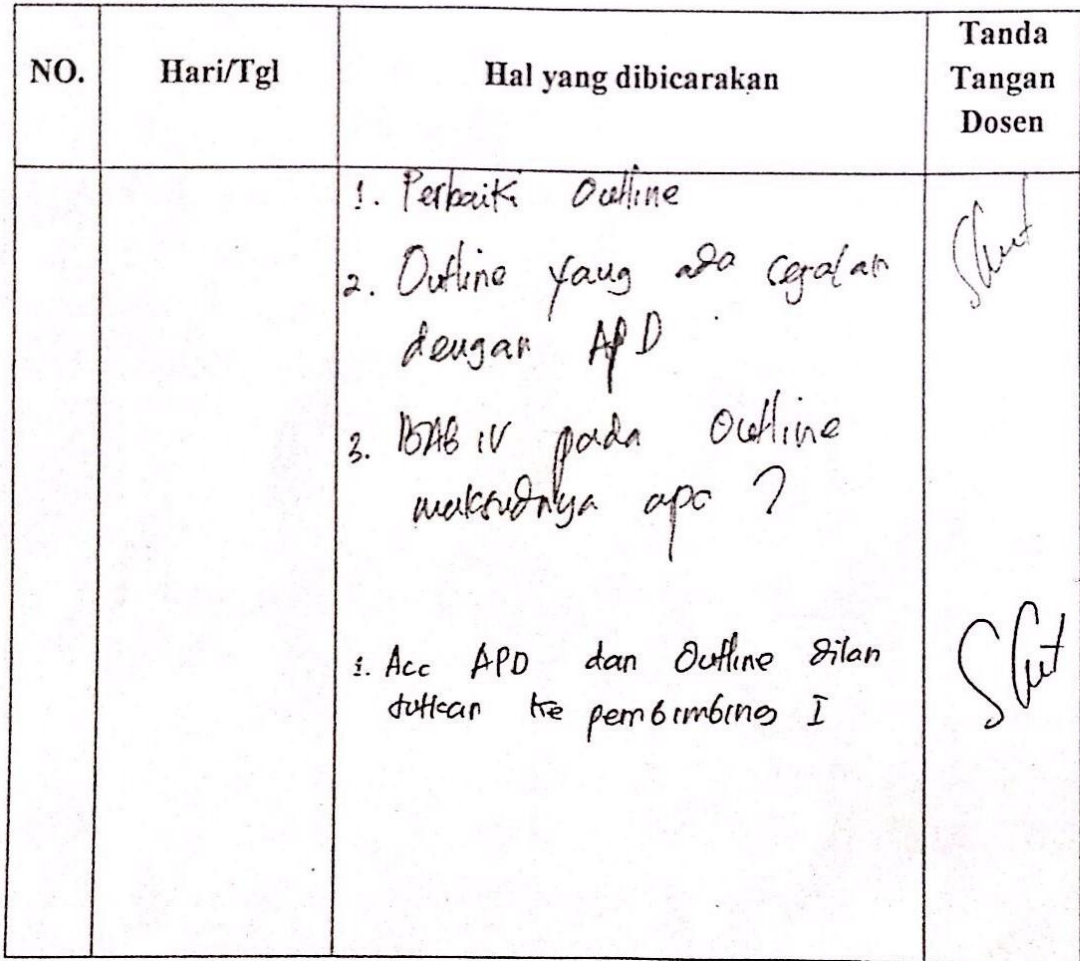 NO. Hari/Tgl Hal yang dibicarakan Tanda Tangan Dosen
1. Perbaiki Outline
2. Outline yang ada segalan
dengan APD
3. BAB IV pada Outline
maksudnya apa ?
1. Acc APD dan Outline dilan
dutkan ke pembimbing I